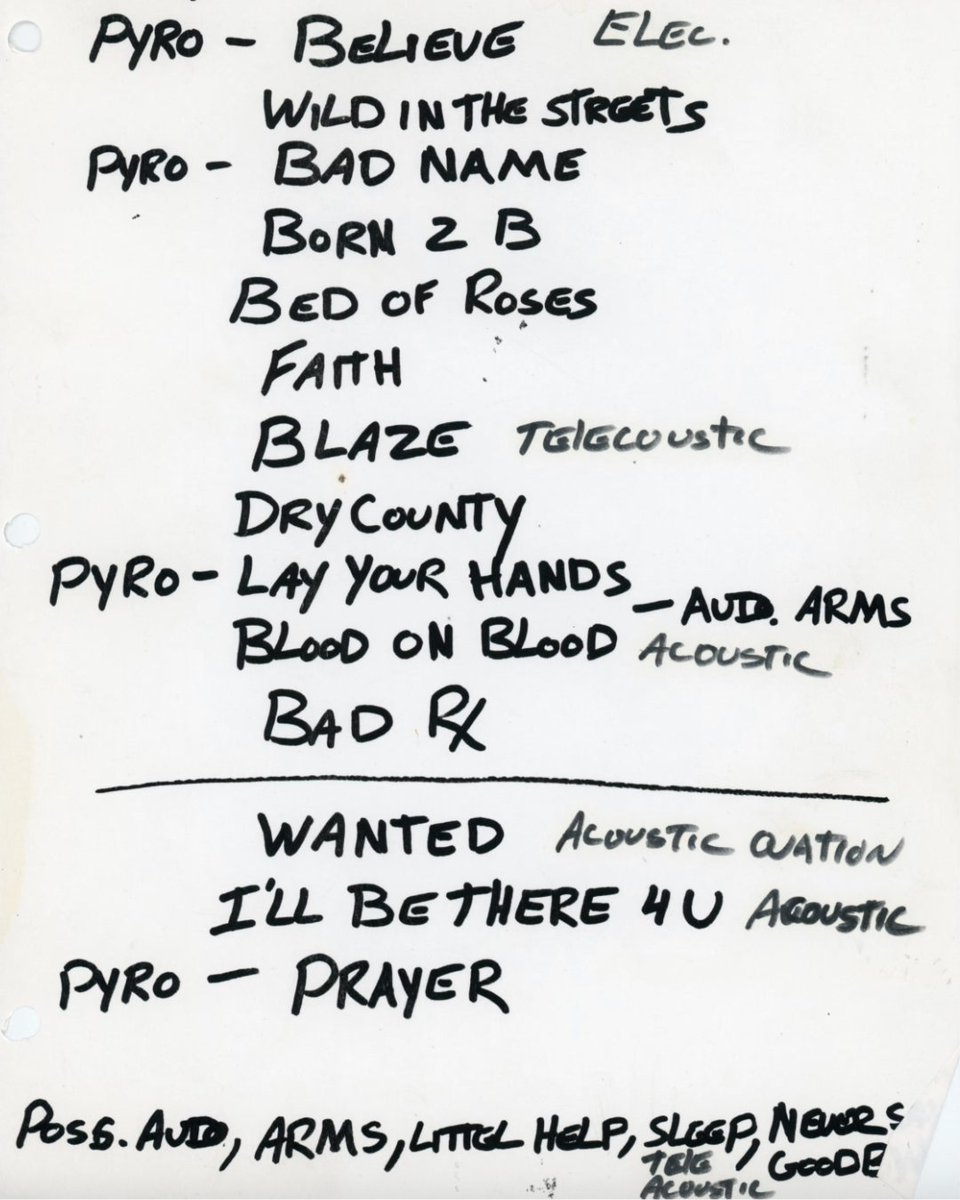 PYRO - BELIEVE ELEC.
WILD IN THE STREETS
PYRO - BAD NAME
BORN 2 B
BED OF ROSES
FAITH
BLAZE TELECOUSTIC
DRY COUNTY
PYRO - LAY YOUR HANDS
- AUD. ARMS
BLOOD ON BLOOD ACOUSTIC
BAD RX
WANTED ACOUSTIC OVATION
I'LL BE THERE 4 U ACOUSTIC
PYRO - PRAYER
POSS. AUD, ARMS, LITTEL HELP, SLEEP, NEVER S
TELE GOODE
ACOUSTIC